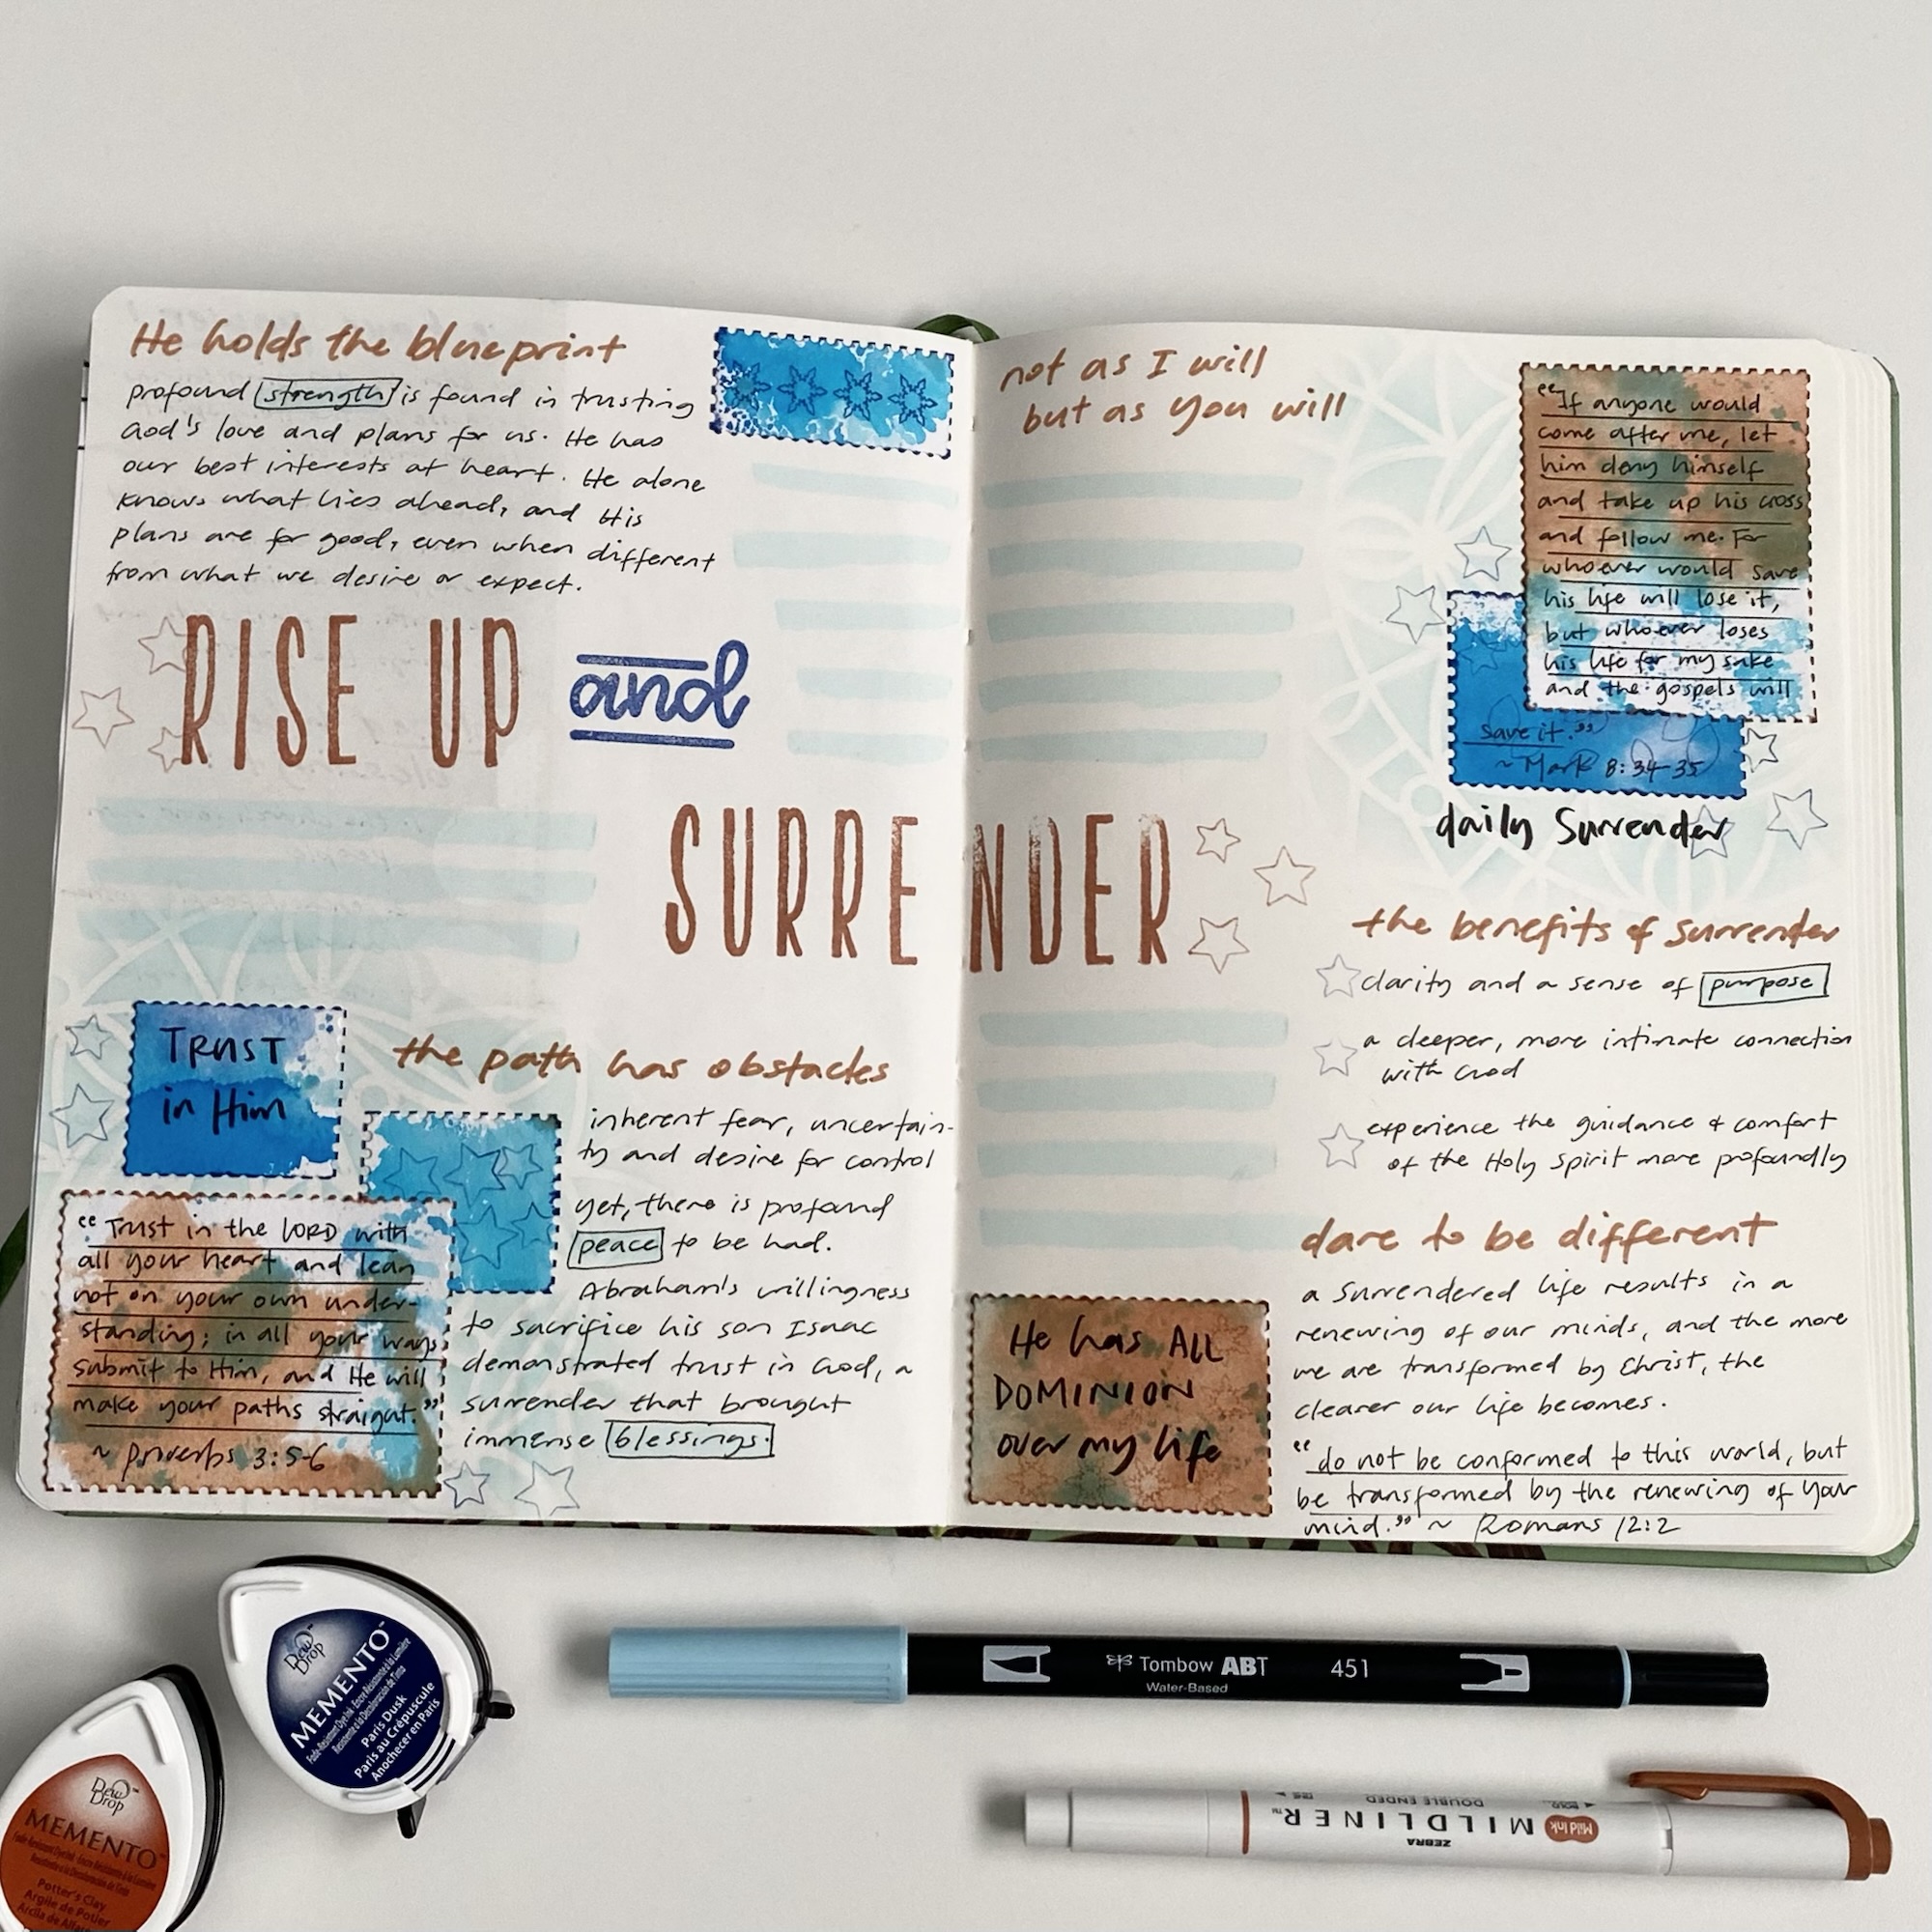 He holds the blueprint
profound strength is found in trusting
God's love and plans for us. He has
our best interests at heart. He alone
knows what lies ahead, and His
plans are for good, even when different
from what we desire or expect.
RISE UP and
SURRENDER
TRUST
in Him
"Trust in the LORD with
all your heart and lean
not on your own under-
standing; in all your ways
submit to Him, and He will
make your paths straight."
~ Proverbs 3:5-6
the path has obstacles
inherent fear, uncertain-
ty and desire for control
yet, there is profound
peace to be had.
Abraham's willingness
to sacrifice his son Isaac
demonstrated trust in God, a
surrender that brought
immense blessings.
not as I will
but as you will
"If anyone would
come after me, let
him deny himself
and take up his cross
and follow me. For
whoever would save
his life will lose it,
but whoever loses
his life for my sake
and the gospels will
save it."
~ Mark 8:34-35
daily Surrender
the benefits of surrender
clarity and a sense of purpose
a deeper, more intimate connection
with God
experience the guidance & comfort
of the Holy Spirit more profoundly
He has ALL
DOMINION
over my life
dare to be different
a surrendered life results in a
renewing of our minds, and the more
we are transformed by Christ, the
clearer our life becomes.
"do not be conformed to this world, but
be transformed by the renewing of your
mind." ~ Romans 12:2
Dew Drop
MEMENTO™
Fade-Resistant Dye Ink · Encre Résistante à la Lumière
Resistente a la Decoloración de Tinta
Paris Dusk
Paris au Crépuscule
Anochecer en Paris
Dew Drop
MEMENTO™
Fade-Resistant Dye Ink · Encre Résistante à la Lumière
Resistente a la Decoloración de Tinta
Potter's Clay
Argile de Potier
Arcilla de
Tombow ABT 451
Water-Based
ZEBRA
MILDLINER™
DOUBLE ENDED
Mild Ink